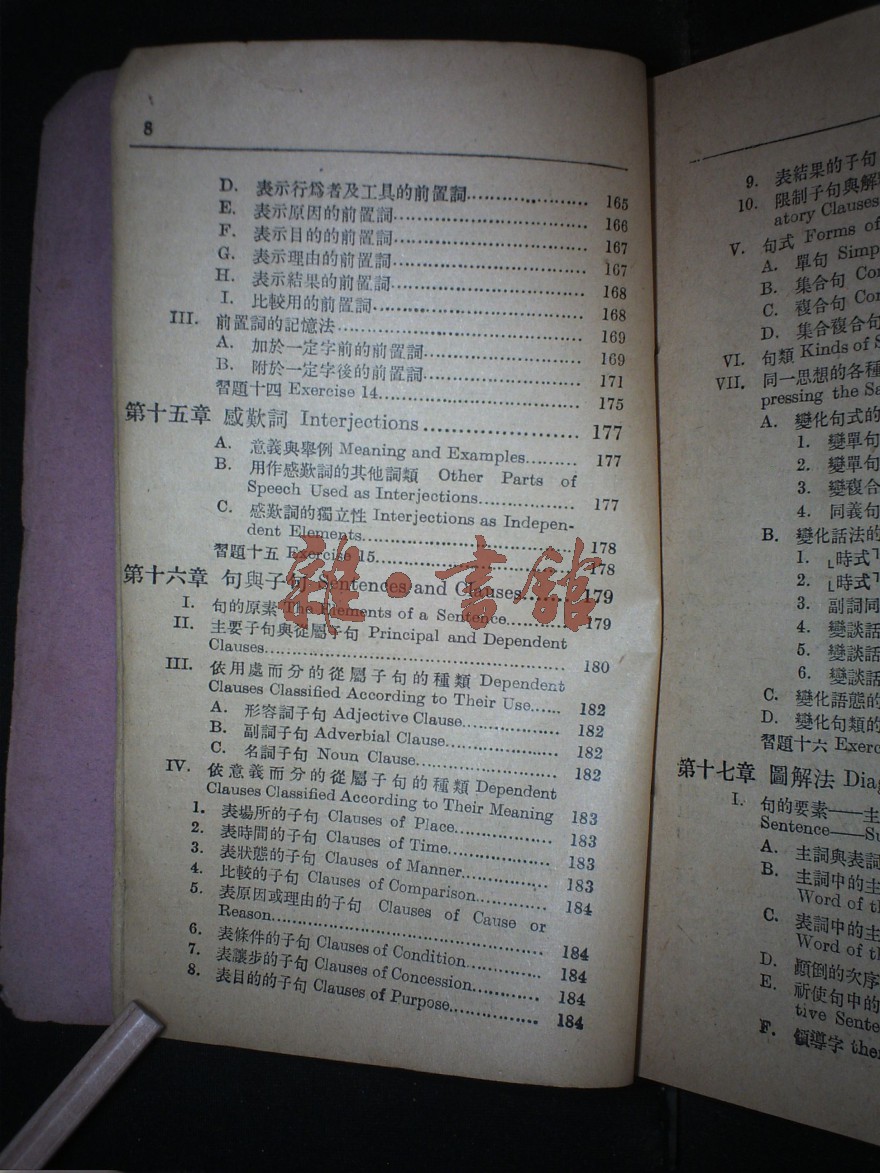 8
D. 表示行爲者及工具的前置詞.................. 165
E. 表示原因的前置詞.................. 166
F. 表示目的的前置詞.................. 167
G. 表示理由的前置詞.................. 167
H. 表示結果的前置詞.................. 168
I. 比較用的前置詞.................. 168
III. 前置詞的記憶法.................. 169
A. 加於一定字前的前置詞.................. 169
B. 附於一定字後的前置詞.................. 171
習題十四 Exercise 14.................. 175
第十五章 感歎詞 Interjections.................. 177
A. 意義與舉例 Meaning and Examples......... 177
B. 用作感歎詞的其他詞類 Other Parts of
Speech Used as Interjections............... 177
C. 感歎詞的獨立性 Interjections as Indepen-
dent Elements.................. 178
習題十五 Exercise 15.................. 178
第十六章 句與子句 Sentences and Clauses......... 179
I. 句的原素 The Elements of a Sentence......... 179
II. 主要子句與從屬子句 Principal and Dependent
Clauses.................. 180
III. 依用處而分的從屬子句的種類 Dependent
Clauses Classified According to Their Use...... 182
A. 形容詞子句 Adjective Clause............... 182
B. 副詞子句 Adverbial Clause.................. 182
C. 名詞子句 Noun Clause.................. 182
IV. 依意義而分的從屬子句的種類 Dependent
Clauses Classified According to Their Meaning 183
1. 表場所的子句 Clauses of Place............... 183
2. 表時間的子句 Clauses of Time............... 183
3. 表狀態的子句 Clauses of Manner............... 183
4. 比較的子句 Clauses of Comparison............ 184
5. 表原因或理由的子句 Clauses of Cause or
Reason.................. 184
6. 表條件的子句 Clauses of Condition............ 184
7. 表讓步的子句 Clauses of Concession............ 184
8. 表目的的子句 Clauses of Purpose............... 184
雜·書館
9. 表結果的子句
10. 限制子句與解
atory Clauses
V. 句式 Forms of
A. 單句 Simp
B. 集合句 Co
C. 複合句 Co
D. 集合複合句
VI. 句類 Kinds of S
VII. 同一思想的各種
pressing the Sa
A. 變化句式的
1. 變單句
2. 變單句
3. 變複合
4. 同義句
B. 變化話法的
1. 「時式」
2. 「時式」
3. 副詞同
4. 變談話
5. 變談話
6. 變談話
C. 變化語態的
D. 變化句類的
習題十六 Exerc
第十七章 圖解法 Diag
I. 句的要素——主
Sentence——Su
A. 主詞與表詞
B. 主詞中的主
Word of th
C. 表詞中的主
Word of th
D. 顚倒的次序
E. 祈使句中的
tive Sente
F. 領導字 ther